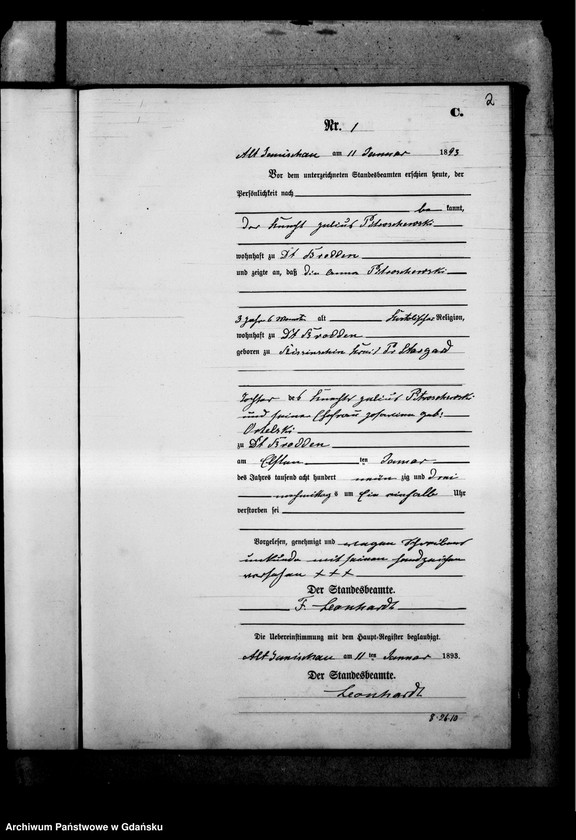 2
C.
Nr. 1
Alt Janischau am 11 Januar 1893
Vor dem unterzeichneten Standesbeamten erschien heute, der
Persönlichkeit nach
be kannt,
der Knecht Julius
wohnhaft zu Dt Brodden
und zeigte an, daß die Anna
3 Jahr 6 Monate alt katolischer Religion,
wohnhaft zu Dt Brodden
geboren zu Kreis Pr Stargard
Tochter des Knechts Julius
und seine Ehefrau geb:
zu Dt Brodden
am Elften ten Januar
des Jahres tausend acht hundert neun zig und drei
nachmittag s um Ein einhalb Uhr
verstorben sei
Vorgelesen, genehmigt und wegen Schreibens
unkunde mit seinen Handzeichen
versehen + + +
Der Standesbeamte.
F. Leonhardt
Die Uebereinstimmung mit dem Haupt-Register beglaubigt.
Alt Janischau am 11 ten Januar 1893.
Der Standesbeamte.
Leonhardt
8·26·10
Archiwum Państwowe w Gdańsku